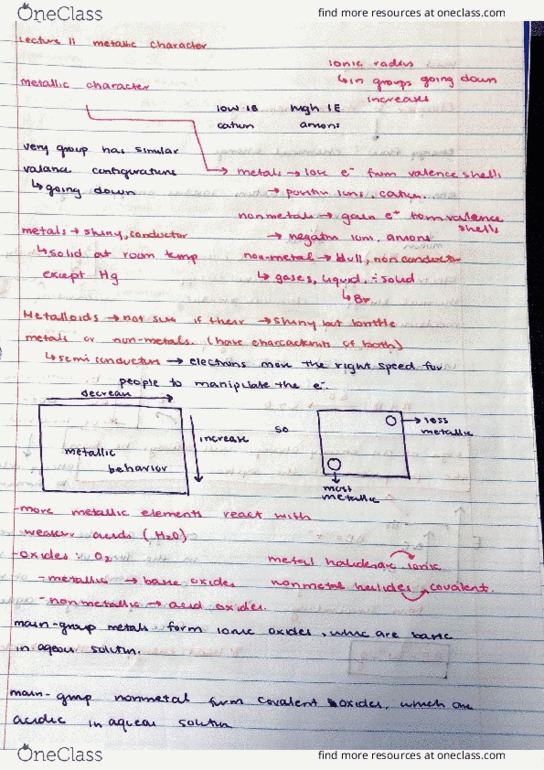 OneClass find more resources at oneclass.com
Lecture 11 metallic character
ionic radius
↳in groups going down
increases
metallic character
low IE high IE
cation anions
very group has similar
valance configurations
↳going down
→ metals → lose e⁻ from valence shells
→ positiv ions, cation.
nonmetals → gain e⁺ from valence
shells
→ negativ ion, anions
metals → shiny, conductor
↳solid at room temp
except Hg
non-metal → dull, non conductor
↳ gases, liquid, solid
↳Br
Metalloids → not sure if there → shiny but brittle
metals or non-metals. (have of both)
↳semi conductors → electrons move the right speed for
people to manipulate the e⁻.
decrease
metallic
behavior
increase
so
→ less
metallic
most
metallic
-more metallic elements react with
weaker acids (H₂O)
-oxides: O₂
-metallic → base oxides
-nonmetallic → acid oxides.
metal ionic
nonmetal halides covalent.
main-group metals form ionic oxides, whic are basic
in aqeous solution.
main-group nonmetal form covalent oxides, which are
acidic in aqueas solution
OneClass find more resources at oneclass.com